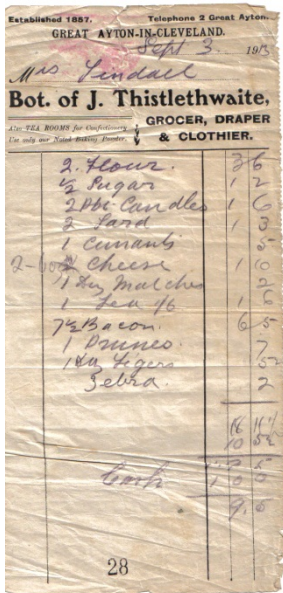 Established 1857. Telephone 2 Great Ayton.
GREAT AYTON-IN-CLEVELAND.
Sept 3 1913
Mrs Tindall
Bot. of J. Thistlethwaite,
Also TEA ROOMS for Confectionery
Use only our Noted Baking Powder.
GROCER, DRAPER
& CLOTHIER.
2 Flour. 3 6
½ Sugar 1 2
Candles 1 6
2 Lard 1 3
1 Currants 5
Cheese 1 0
1 Matches 2
1 Tea 6
7½ Bacon. 6 5
1 Prunes. 7
1
Zebra. 2
5
Cash 1 0 0
9 6
28